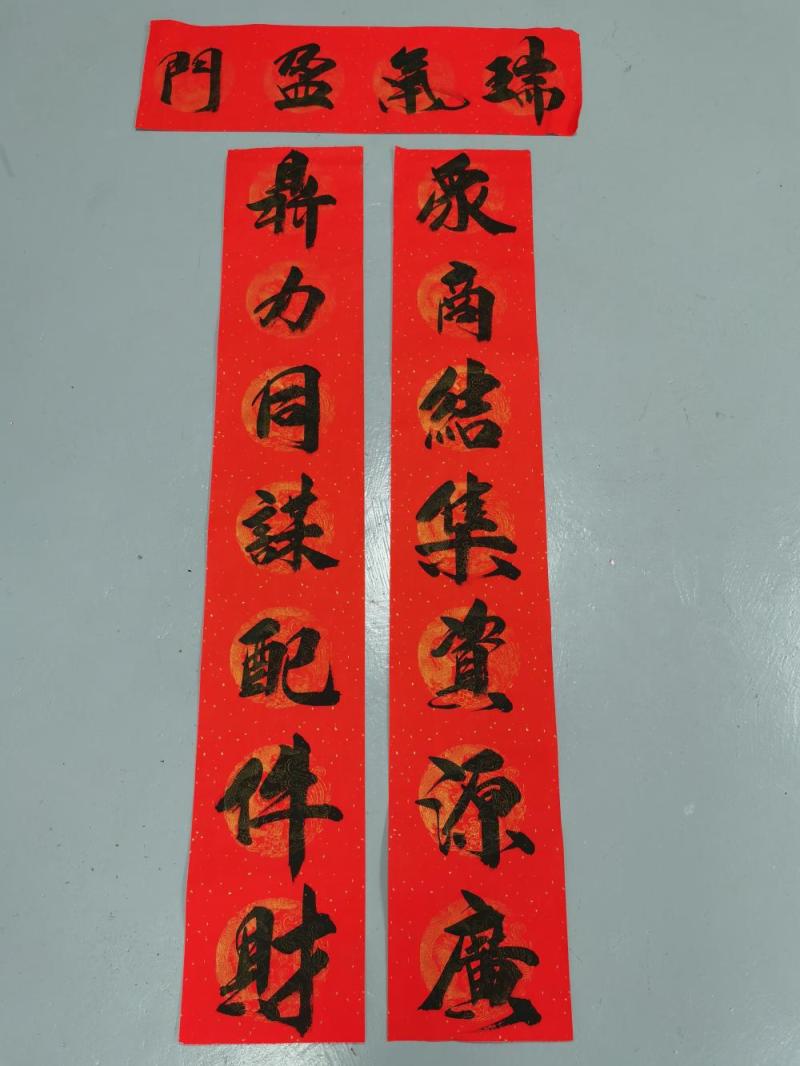 瑞氣盈門
衆商結集資源廣
鼎力同謀配件財